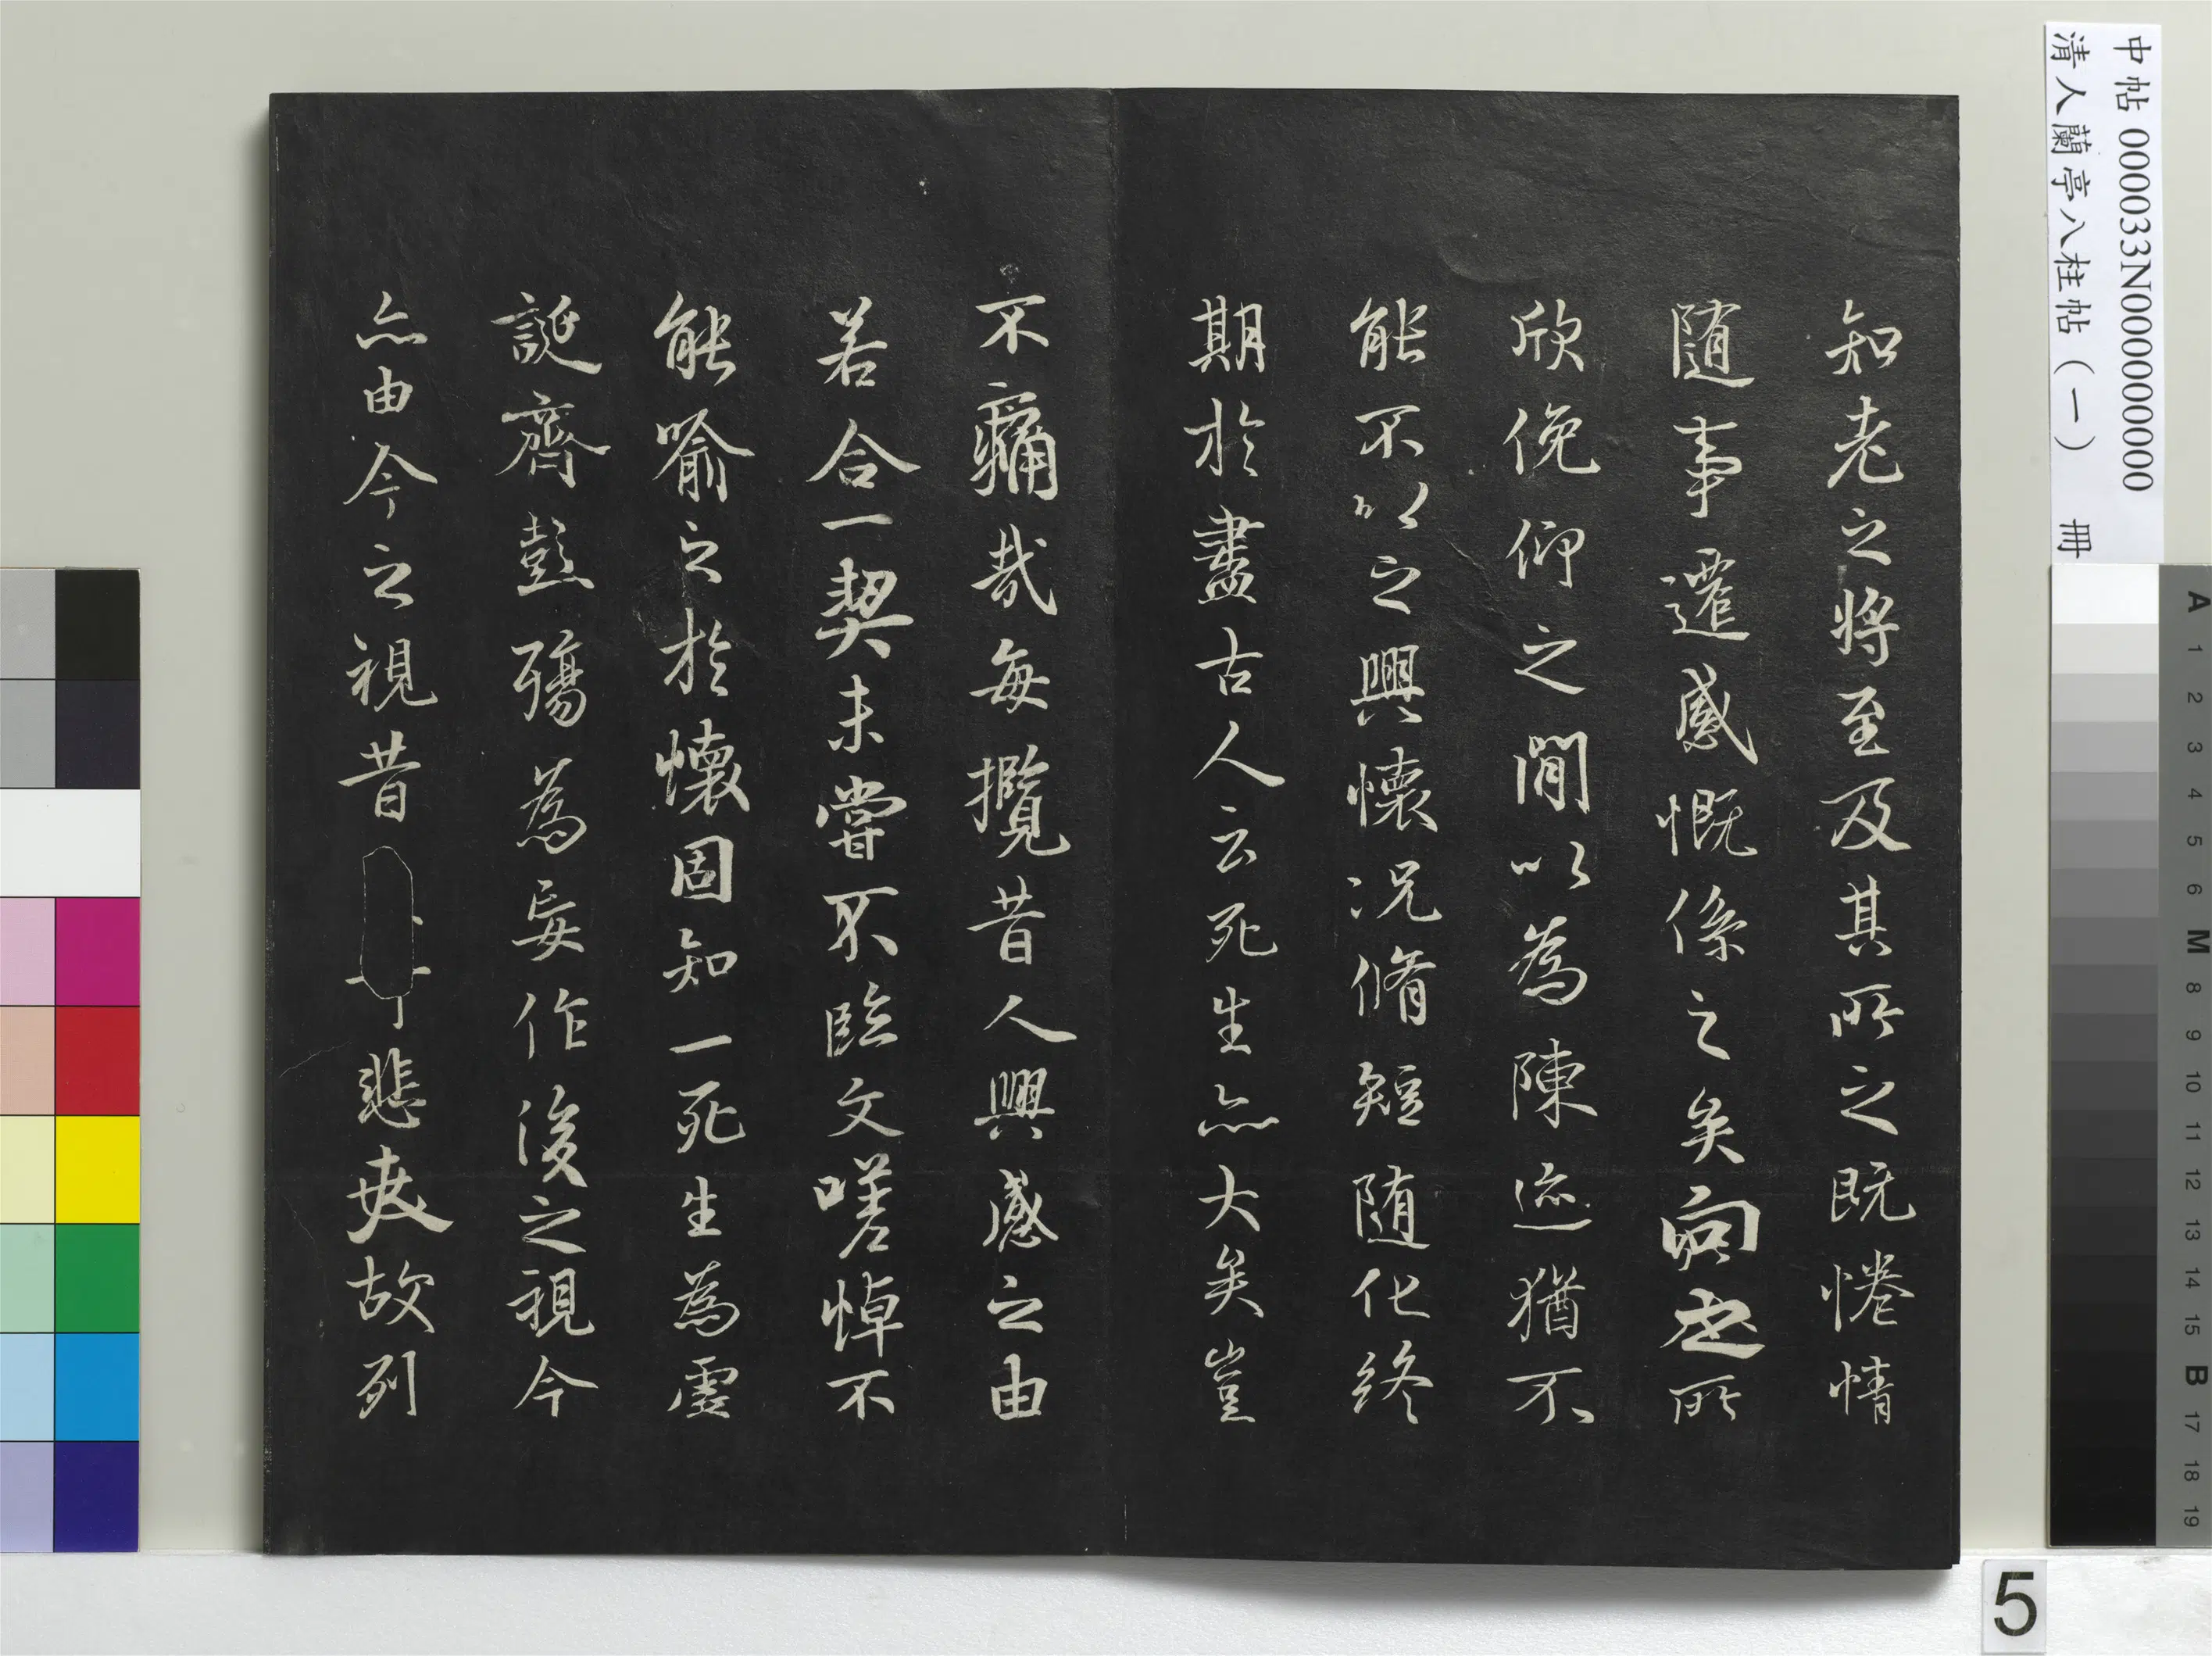 知老之將至及其所之既惓情
隨事遷感慨係之矣向之所
欣俛仰之閒以為陳迹猶不
能不以之興懷況脩短隨化終
期於盡古人云死生亦大矣豈
不痛哉每攬昔人興感之由
若合一契未嘗不臨文嗟悼不
能喻之於懷固知一死生為虛
誕齊彭殤為妄作後之視今
亦由今之視昔
悲夫故列
中帖 000033N000000000
清人蘭亭八柱帖（一） 冊
5
A 1 2 3 4 5 6 M 8 9 10 11 12 13 14 15 B 17 18 19